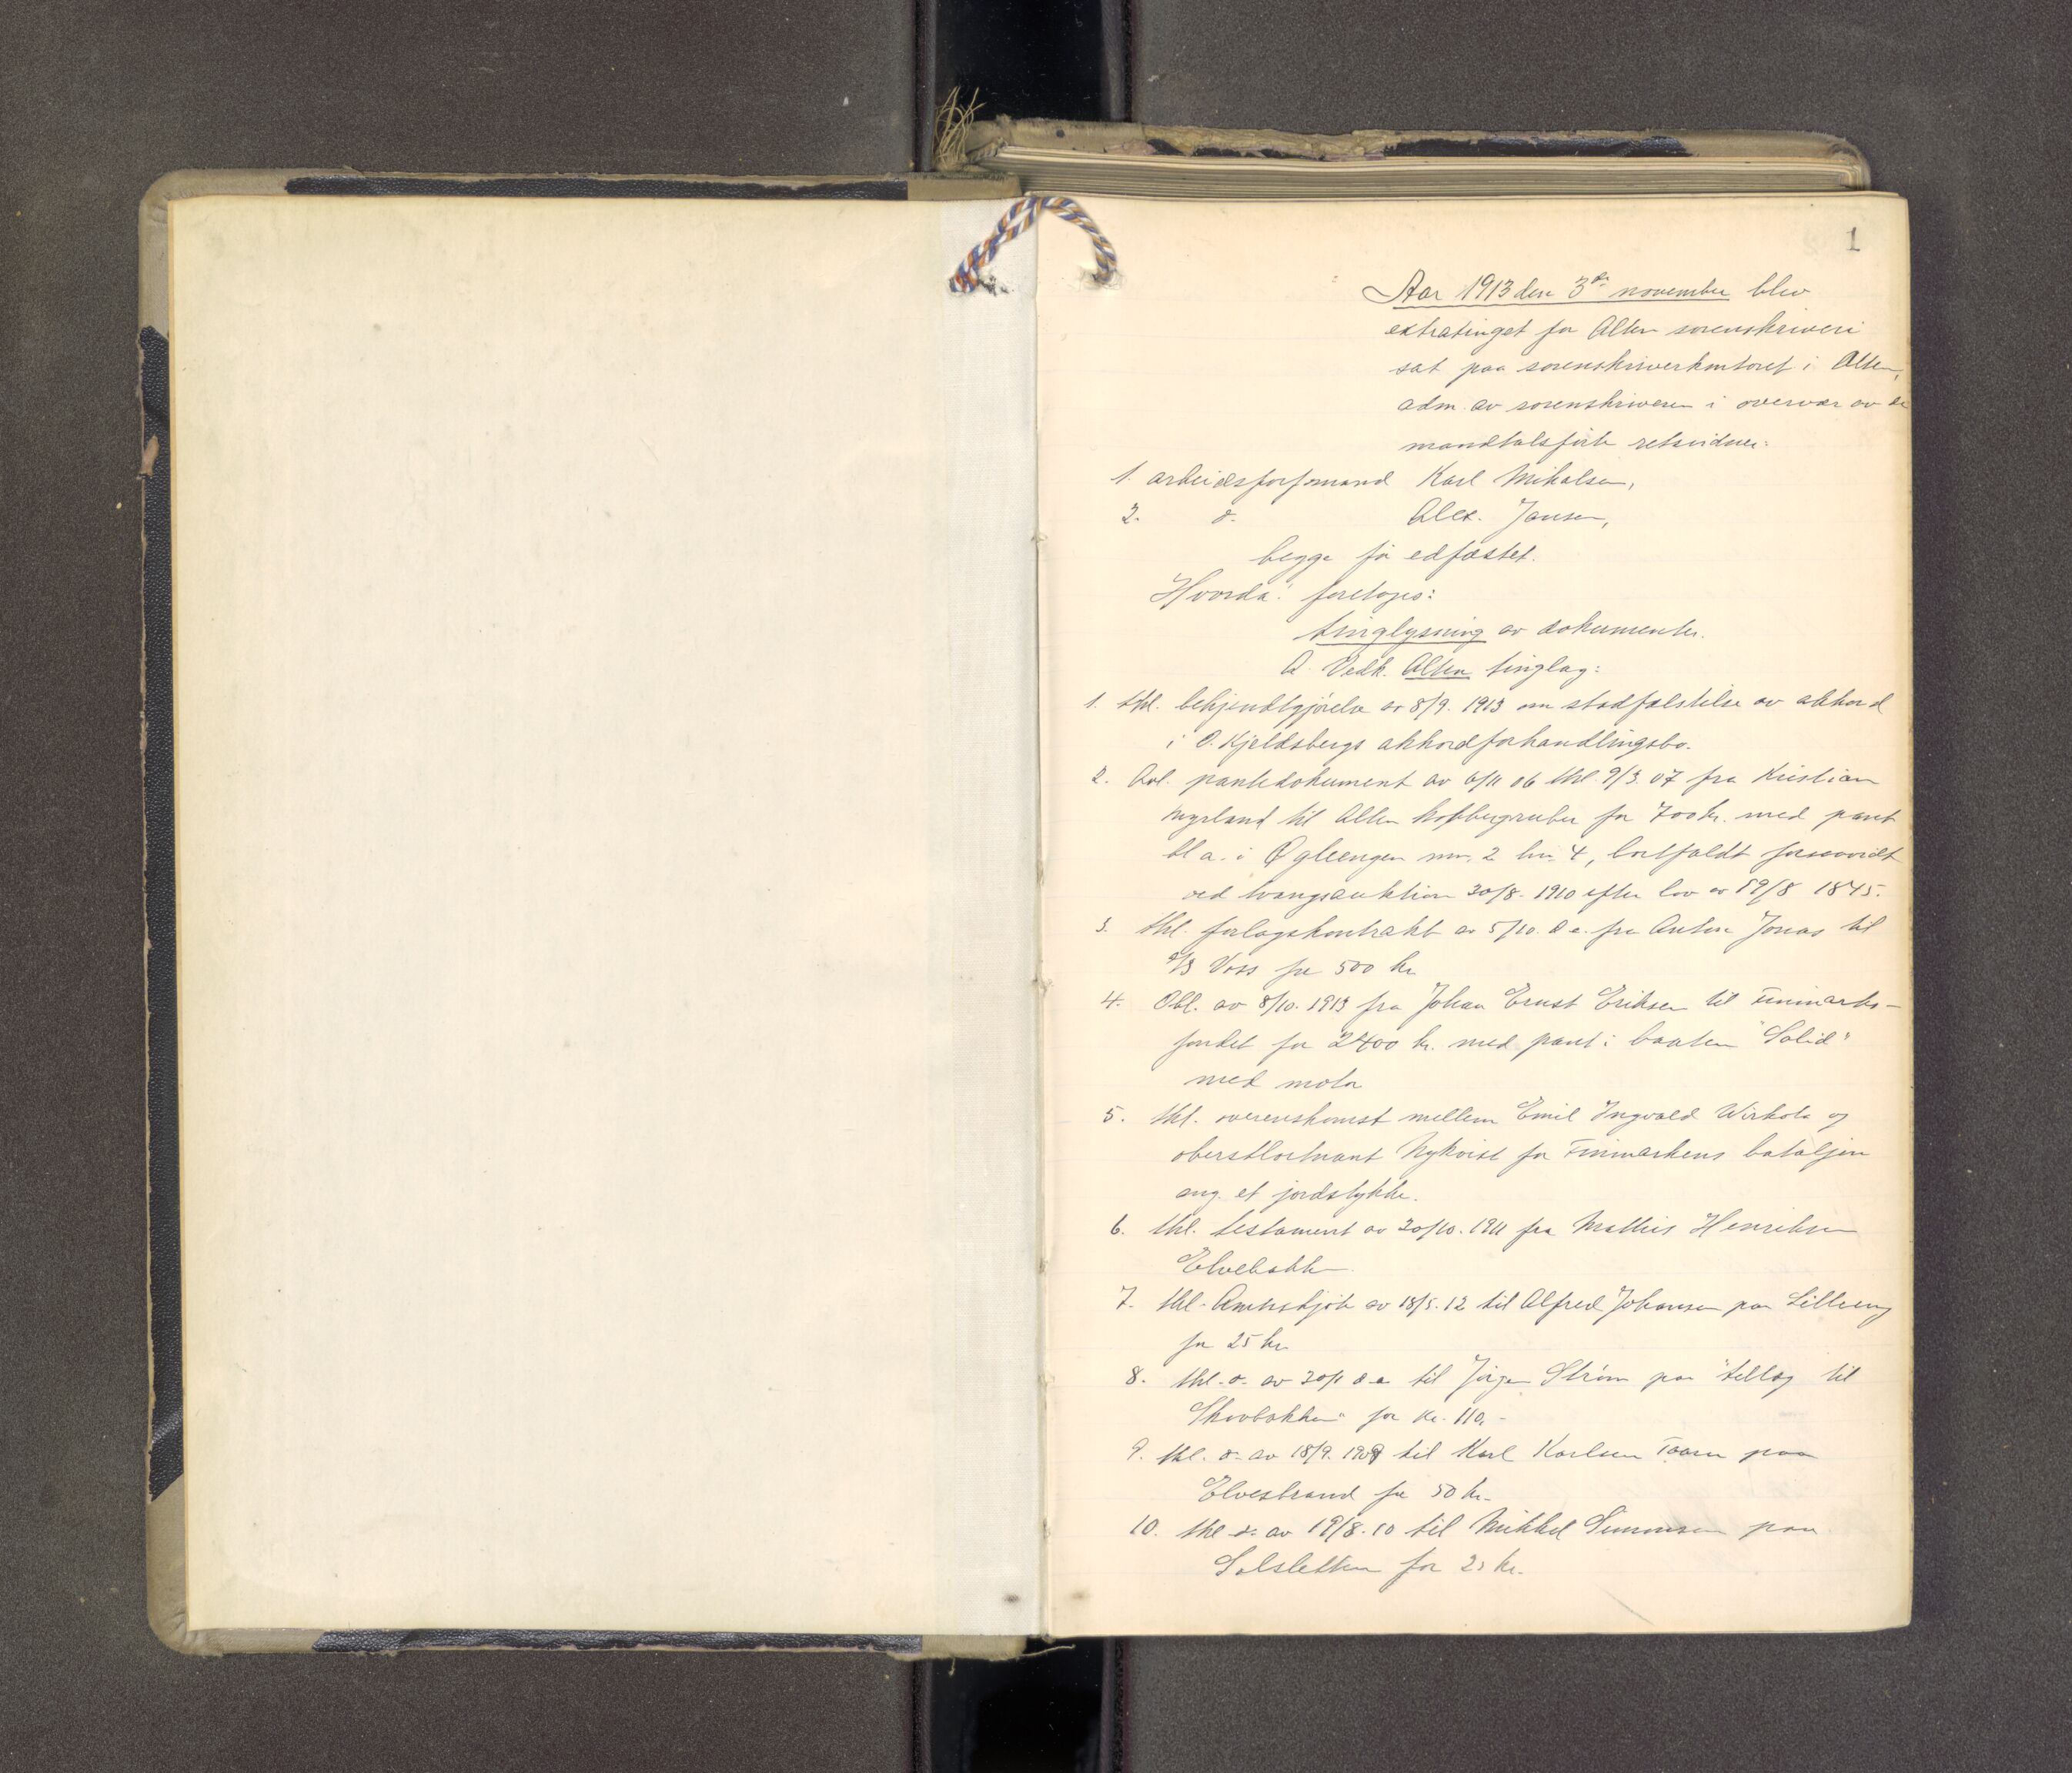 1
Aar 1913 den 3de november blev
extratinget for Alten sorenskriveri
sat paa sorenskriverkontoret i Alten,
adm. av sorenskriveren i overvær av de
mandtalsførte retsvidner:
1. arbeidsformand Karl Mikalsen,
2. d. Alex. Jansen,
begge før edfæstet.
Hvorda: foretoges:
tinglysning av dokumenter.
A. Vedk. Alten tinglag:
1. thl. bekjendtgjørelse av 8/9. 1913 om stadfæstelse av akkord
i O. Kjeldsbergs akkordforhandlingsbo.
2. Avl. pantedokument av 6/11 06 thl. 9/3. 07 fra Kristian
Myrland til Alten kobbergruber for 700 kr. med pant
bl a. i Øgleengen mn. 2 lnr. 4, bortfaldt forsaavidt
ved tvangsauktion 30/8. 1910 efter lov av 19/8 1845.
3. thl. forlagskontrakt av 5/10. d.a. fra Anton Jonas til
A/S Voss for 500 kr.
4. Obl. av 8/10. 1913 fra Johan Ernst Eriksen til Finmarks-
fondet for 2400 kr. med pant i baaten "Solid"
med motor
5. thl. overenskomst mellem Emil Ingvald Wirkola og
oberstløitnant Nykvist for Finmarkens bataljon
ang. et jordstykke.
6. thl. testament av 20/10. 1911 fra Mathis Henriksen
Elvebakk
7. thl. Amtsskjøte av 18/5. 12 til Alfred Johansen paa Lilleeng
for 25 kr
8. thl. d. av 30/1 d.a. til Jørgen Strøm paa "tillæg til
Skovbakken" for kr. 110,-
9. thl. d. av 18/9. 1909 til Karl Karlsen Taaren paa
Elvestrand for 50 kr.
10. thl d. av 19/8. 10 til Mikkel Simonsen paa
Solsletten for 25 kr.